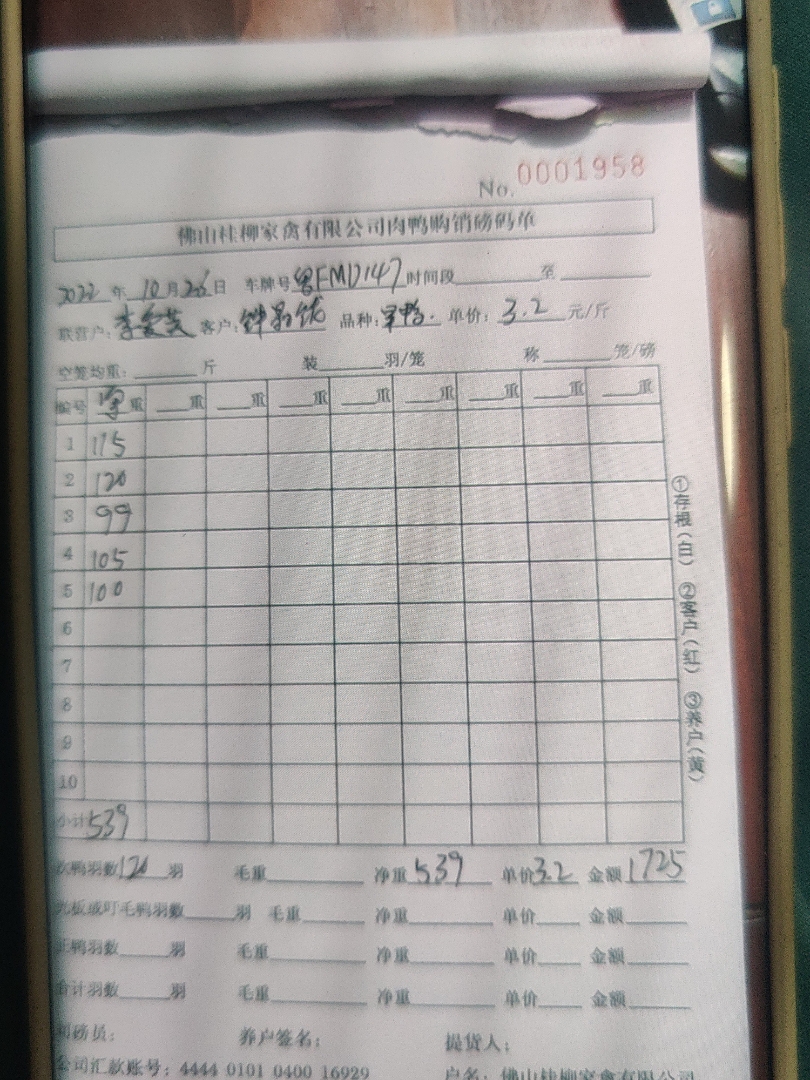 No. 0001958
佛山桂柳家禽有限公司肉鸭购销磅码单
2022年10月26日 车牌号粤FMD147时间段 至
联营户: 客户: 品种: 单价: 3.2 元/斤
空笼均重: 斤 装 羽/笼 称 笼/磅
编号 重 重 重 重 重 重 重 重 重
1 115
2 120
3 99
4 105
5 100
6
7
8
9
10
小计 539
①存根(白) ②客户(红) ③养户(黄)
次鸭羽数120羽 毛重 净重539 单价3.2 金额1725
光板或盯毛鸭羽数 羽 毛重 净重 单价 金额
正鸭羽数 羽 毛重 净重 单价 金额
合计羽数 羽 毛重 净重 单价 金额
司磅员: 养户签名: 提货人:
公司汇款账号: 4444 0101 0400 16929 户名: 佛山桂柳家禽有限公司